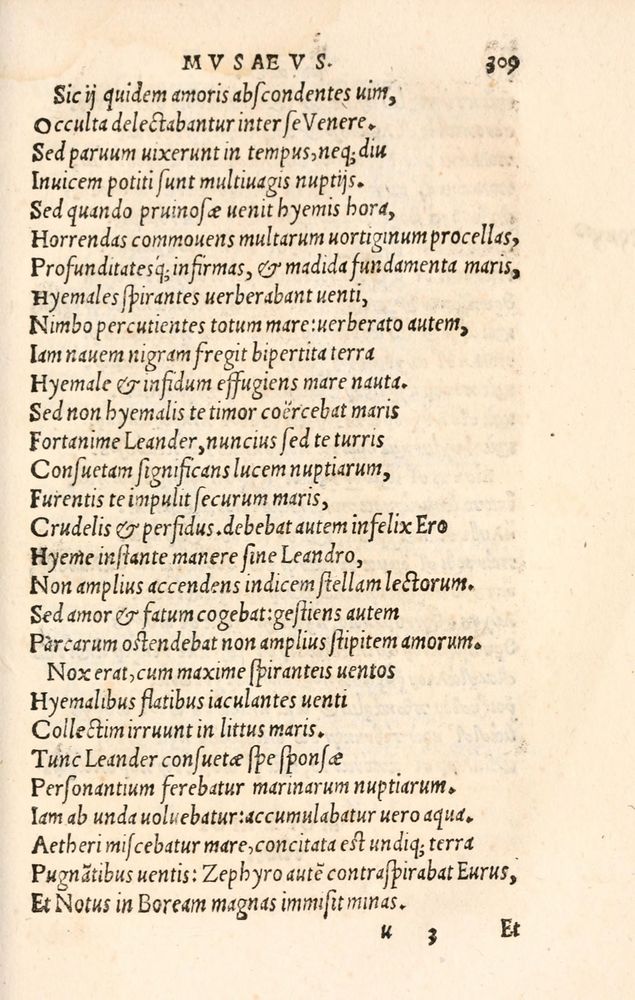 MVSAEVS. 309
Sic ij quidem amoris abſcondentes uim,
Occulta delectabantur inter ſe Venere.
Sed paruum uixerunt in tempus, neq; diu
Inuicem potiti ſunt multiuagis nuptijs.
Sed quando pruinoſæ uenit hyemis hora,
Horrendas commouens multarum uortiginum procellas,
Profunditatesq́; infirmas, & madida fundamenta maris,
Hyemales ſpirantes uerberabant uenti,
Nimbo percutientes totum mare: uerberato autem,
Iam nauem nigram fregit bipertita terra
Hyemale & infidum effugiens mare nauta.
Sed non hyemalis te timor coërcebat maris
Fortanime Leander, nuncius ſed te turris
Conſuetam ſignificans lucem nuptiarum,
Furentis te impulit ſecurum maris,
Crudelis & perfidus. debebat autem infelix Ero
Hyeme inſtante manere ſine Leandro,
Non amplius accendens indicem ſtellam lectorum.
Sed amor & fatum cogebat: geſtiens autem
Parcarum oſtendebat non amplius ſtipitem amorum.
Nox erat, cum maxime ſpiranteis uentos
Hyemalibus flatibus iaculantes uenti
Collectim irruunt in littus maris.
Tunc Leander conſuetæ ſpe ſponſæ
Perſonantium ferebatur marinarum nuptiarum.
Iam ab unda uoluebatur: accumulabatur uero aqua.
Aetheri miſcebatur mare, concitata eſt undiq; terra
Pugnātibus uentis: Zephyro autē contraſpirabat Eurus,
Et Notus in Boream magnas immiſit minas.
u 3 Et